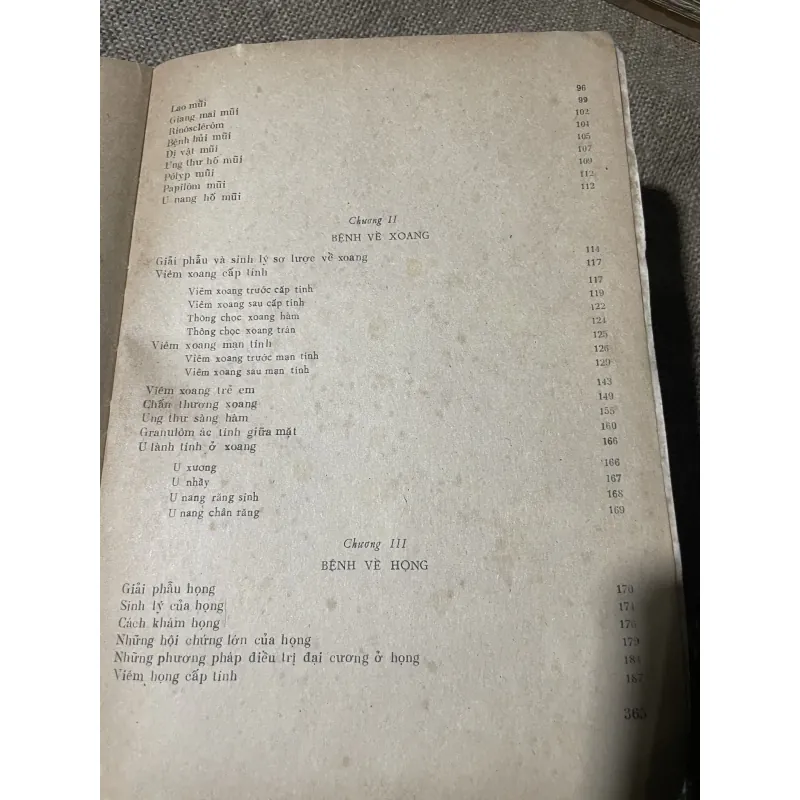 Lao mũi 96
Giang mai mũi 99
Rinôsclérôm 102
Bệnh hủi mũi 104
Dị vật mũi 105
Ung thư hố mũi 107
Pôlyp mũi 109
Papilôm mũi 112
U nang hố mũi 112
Chương II
BỆNH VỀ XOANG
Giải phẫu và sinh lý sơ lược về xoang 114
Viêm xoang cấp tính 117
Viêm xoang trước cấp tính 117
Viêm xoang sau cấp tính 119
Thông chọc xoang hàm 122
Thông chọc xoang trán 124
Viêm xoang mạn tính 125
Viêm xoang trước mạn tính 126
Viêm xoang sau mạn tính 129
Viêm xoang trẻ em 143
Chấn thương xoang 149
Ung thư sàng hàm 155
Granulôm ác tính giữa mặt 160
U lành tính ở xoang 166
U xương 166
U nhầy 167
U nang răng sinh 168
U nang chân răng 169
Chương III
BỆNH VỀ HỌNG
Giải phẫu họng 170
Sinh lý của họng 174
Cách khám họng 176
Những hội chứng lớn của họng 179
Những phương pháp điều trị đại cương ở họng 184
Viêm họng cấp tính 187
365